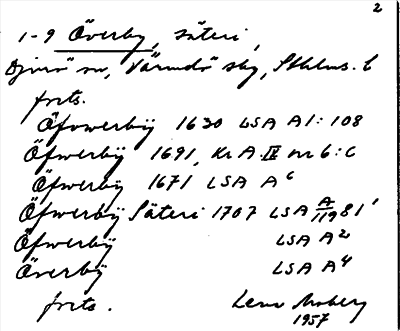 2
1-9 Överby, säteri,
Djurö sn, Värmdö skg, Sthlms. l
forts.
Öfwerbÿ 1630 LSA A1:108
Öfwerbÿ 1691, Kr A. IV nr 6:c
Öfwerbÿ 1671 LSA A6
Öfwerbÿ Säteri 1707 LSA A/119 81'
Öfwerbÿ LSA A2
Överbÿ LSA A4
forts. Lena Moberg
1957